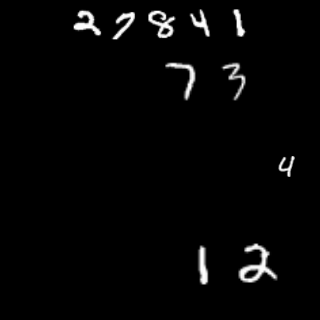 27841
73
4
12